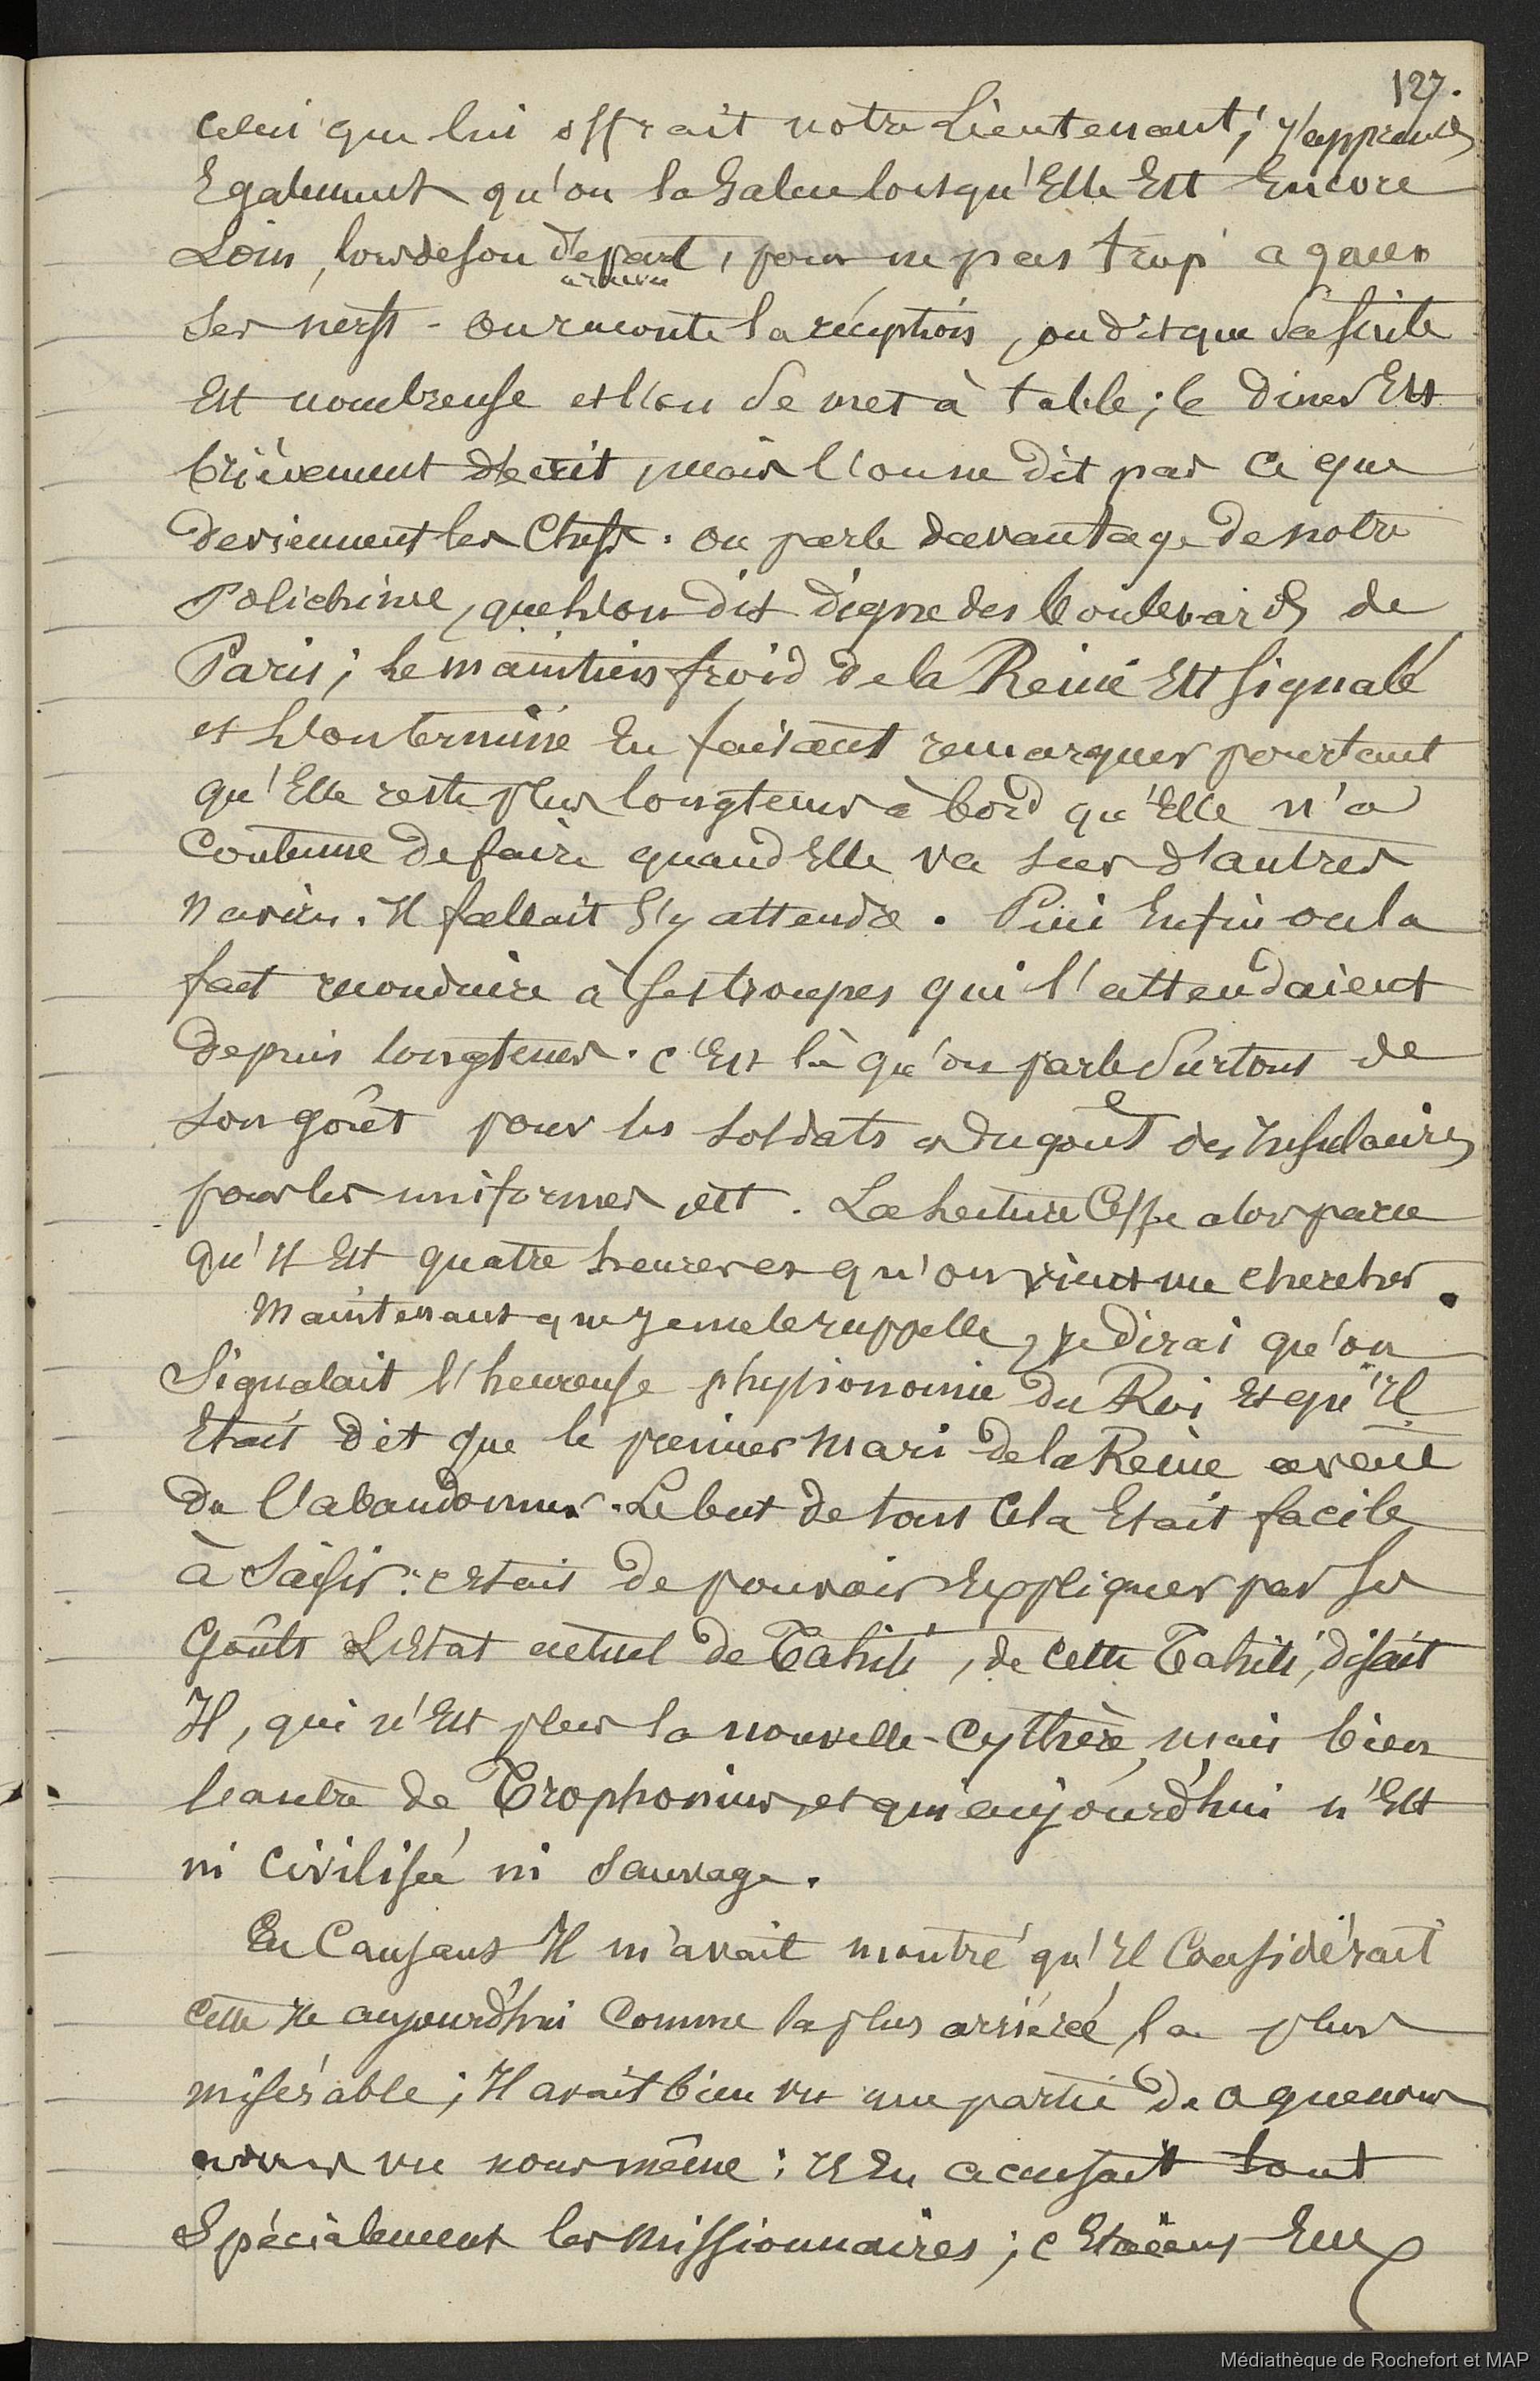 127.
celui que lui offrait notre Lieutenant; j'apprends
Egalement qu'on la Salue lorsqu'Elle Est Encore
Loin, lors de son depart, pour ne pas trop agacer
arrivée
Ses nerfs - on raconte la réception, on dit que sa suite
Est nombreuse et l'on se met à table; le diner Est
brièvement décrit, mais l'on ne dit pas ce que
deviennent les Chefs. on parle davantage de notre
Polichinel, que l'on dit digne des boulevards de
Paris; le maintien froid de la Reine Est signalé
et l'on termine En faisant remarquer pourtant
qu'Elle reste plus longtems à bord qu'Elle n'a
Coutume de faire quand Elle va sur d'autres
navires. Il fallait s'y attendre. Puis Enfin on la
fait reconduire à ses troupes qui l'attendaient
depuis longtems. c'Est là qu'on parle surtout de
son goût pour les soldats et du goût des insulaires
pour les uniformes ett. La lecture Cesse alors parce
qu'il Est quatre heures et qu'on vient me chercher.
Maintenant que je me le rappelle, je dirai qu'on
Signalait l'heureuse physionomie du Roi Et qu'Il
Etait dit que le premier mari de la Reine avait
du l'abandonner. Le but de tout Cela Etait facile
à saisir: c'Etait de pouvoir Expliquer par ses
Goûts L'Etat actuel de Tahiti, de cette Tahiti, disait
Il, qui n'Est plus la nouvelle-Cythère, mais bien
l'antre de Trophonius, et qui aujourd'hui n'Est
ni Civilisée ni Sauvage.
En Causant Il m'avait montré qu'Il Considérait
Cette Ile aujourd'hui Comme la plus arriérée, la plus
misérable; Il avait bien vu une partie de ce que nous
avons vu nous même: Il En accusait tout
Spécialement les Missionnaires; c'Etaient Eux
Médiathèque de Rochefort et MAP